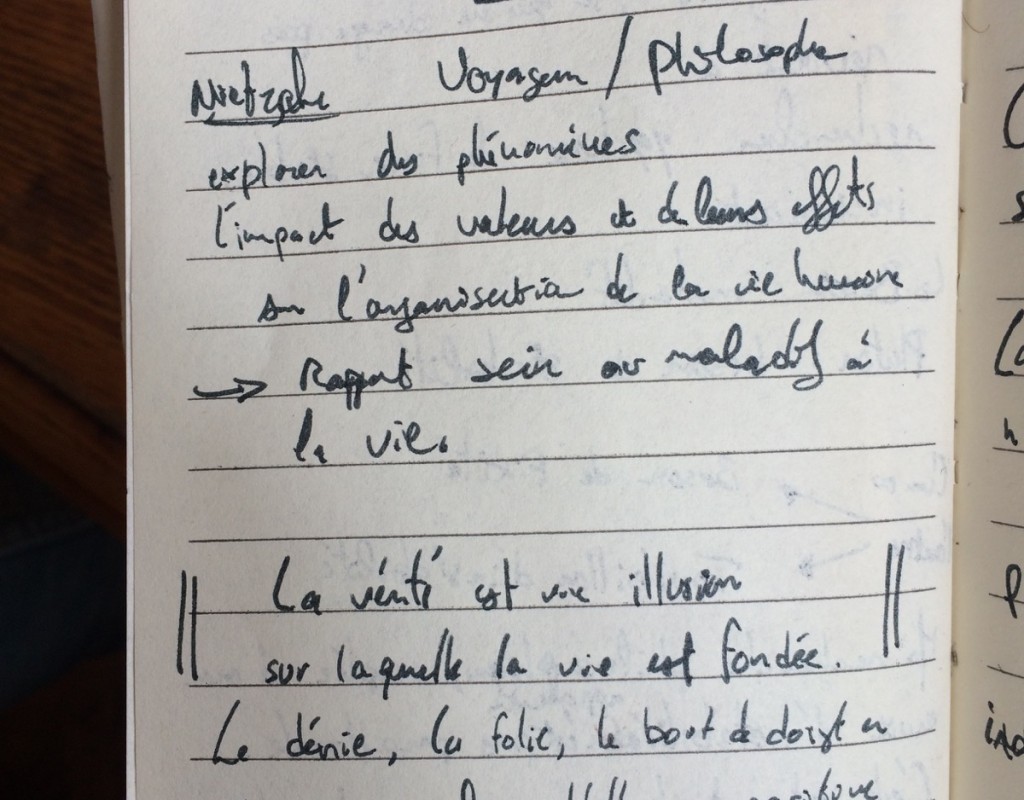 Nietzsche Voyageur / philosophe
explorer des phénomènes
l'impact des valeurs et de leurs effets
sur l'organisation de la vie humaine
→ Rapport sein ou maladif à
la vie.
La vérité est une illusion
sur laquelle la vie est fondée.
Le dénie, la folie, le bout de doigt